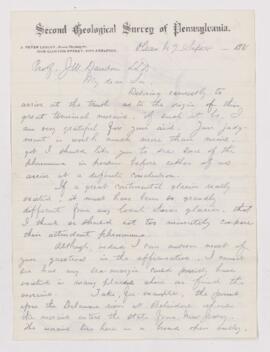 Second Geological Survey of Pennsylvania.
J. PETER LESLEY, State Geologist,
1008 CLINTON STREET, PHILADELPHIA.
Prof. J.W. Dawson LLD
My dear Sir,
Desiring earnestly to
arrive at the truth as to the origin of this
great terminal moraine, if such it be, I am
very grateful for your aid. Your judg-
ment is worth much more than mine
yet I should like you to see some of the
phenomena in person before either of us
arrive at a definite conclusion.
If a great continental glacier really
existed, it must have been so greatly
different from any local Swiss glacier, that
I think we should not too minutely compare
their attendant phenomena.
Although, indeed I can answer most of
your questions in the affirmative, I cannot
see how any sea-margin could possibly have
existed in many places where we found the
moraine. Take, for example, the point
upon the Delaware river at Belvidere where
the moraine enters the state from New Jersey.
The moraine lies here in a broad open valley,